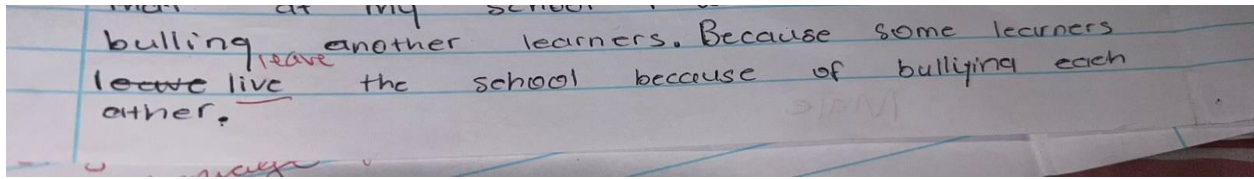 at my school
bulling another learners. Because some learners
leave
leave live the school because of bullying each
other.